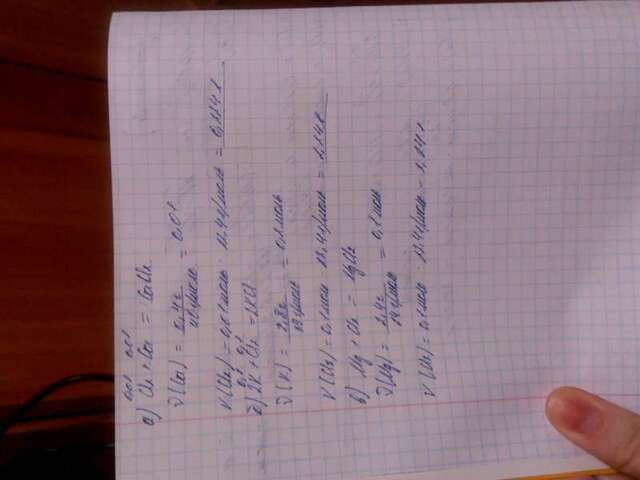 0,01 0,01
а) Cl₂ + Ca = CaCl₂
ν(Ca) = 0,4г / 40г/моль = 0,01
V(Cl₂) = 0,01моль · 22,4л/моль = 0,224л
0,1 0,1
б) 2K + Cl₂ = 2KCl
ν(K) = / 39г/моль = 0,1моль
V(Cl₂) = 0,1моль · 22,4л/моль = 2,24л
в) Mg + Cl₂ = MgCl₂
ν(Mg) = 2,4г / 24г/моль = 0,1моль
V(Cl₂) = 0,1моль · 22,4л/моль = 2,24л